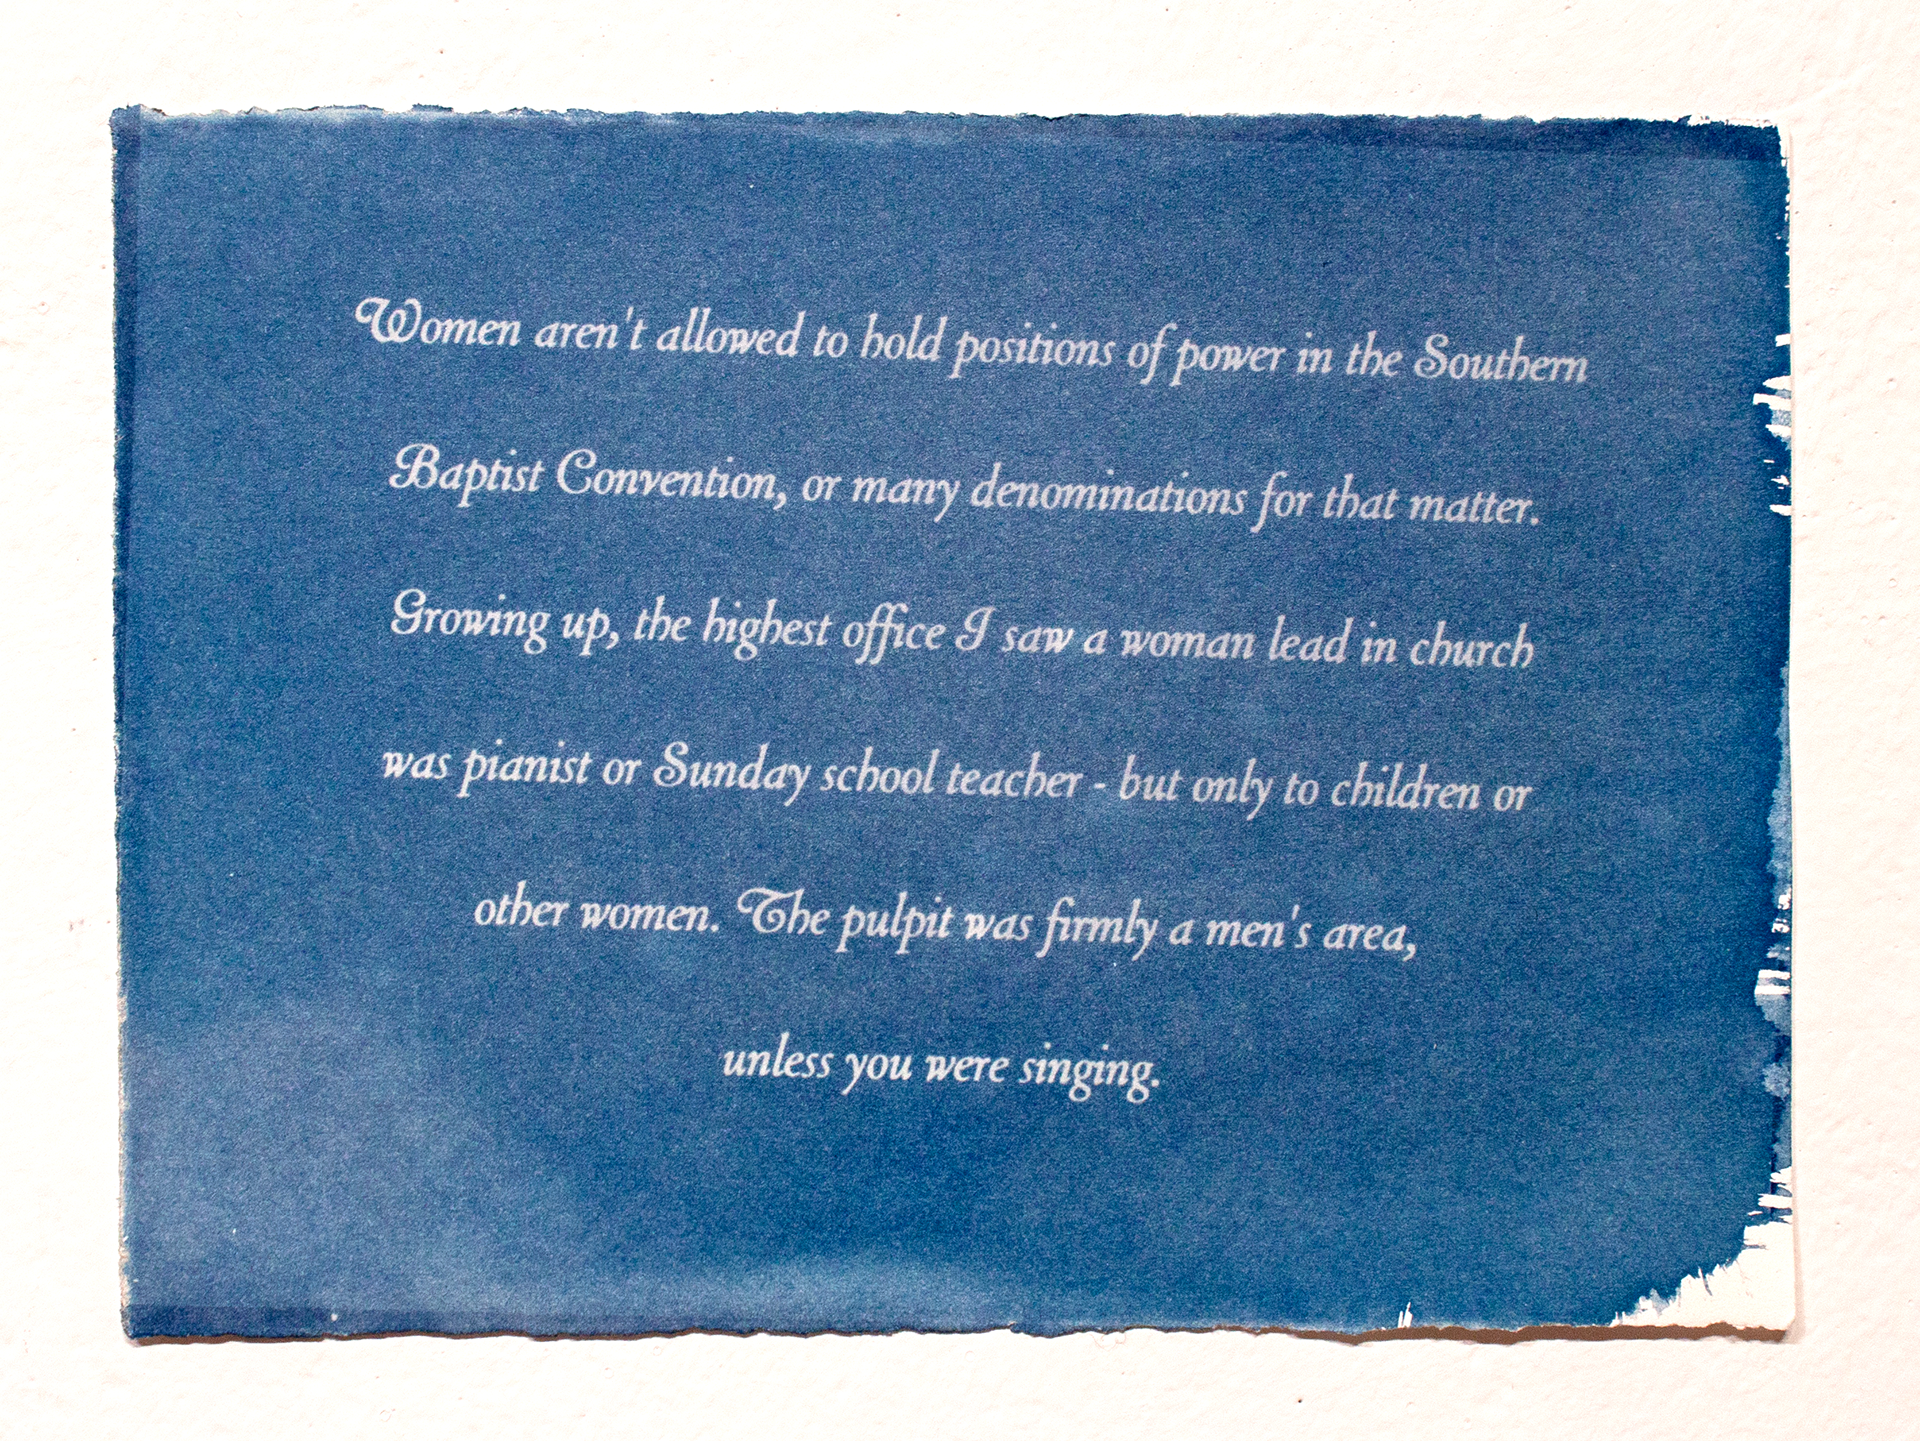 Women aren't allowed to hold positions of power in the Southern
Baptist Convention, or many denominations for that matter.
Growing up, the highest office I saw a woman lead in church
was pianist or Sunday school teacher - but only to children or
other women. The pulpit was firmly a men's area,
unless you were singing.